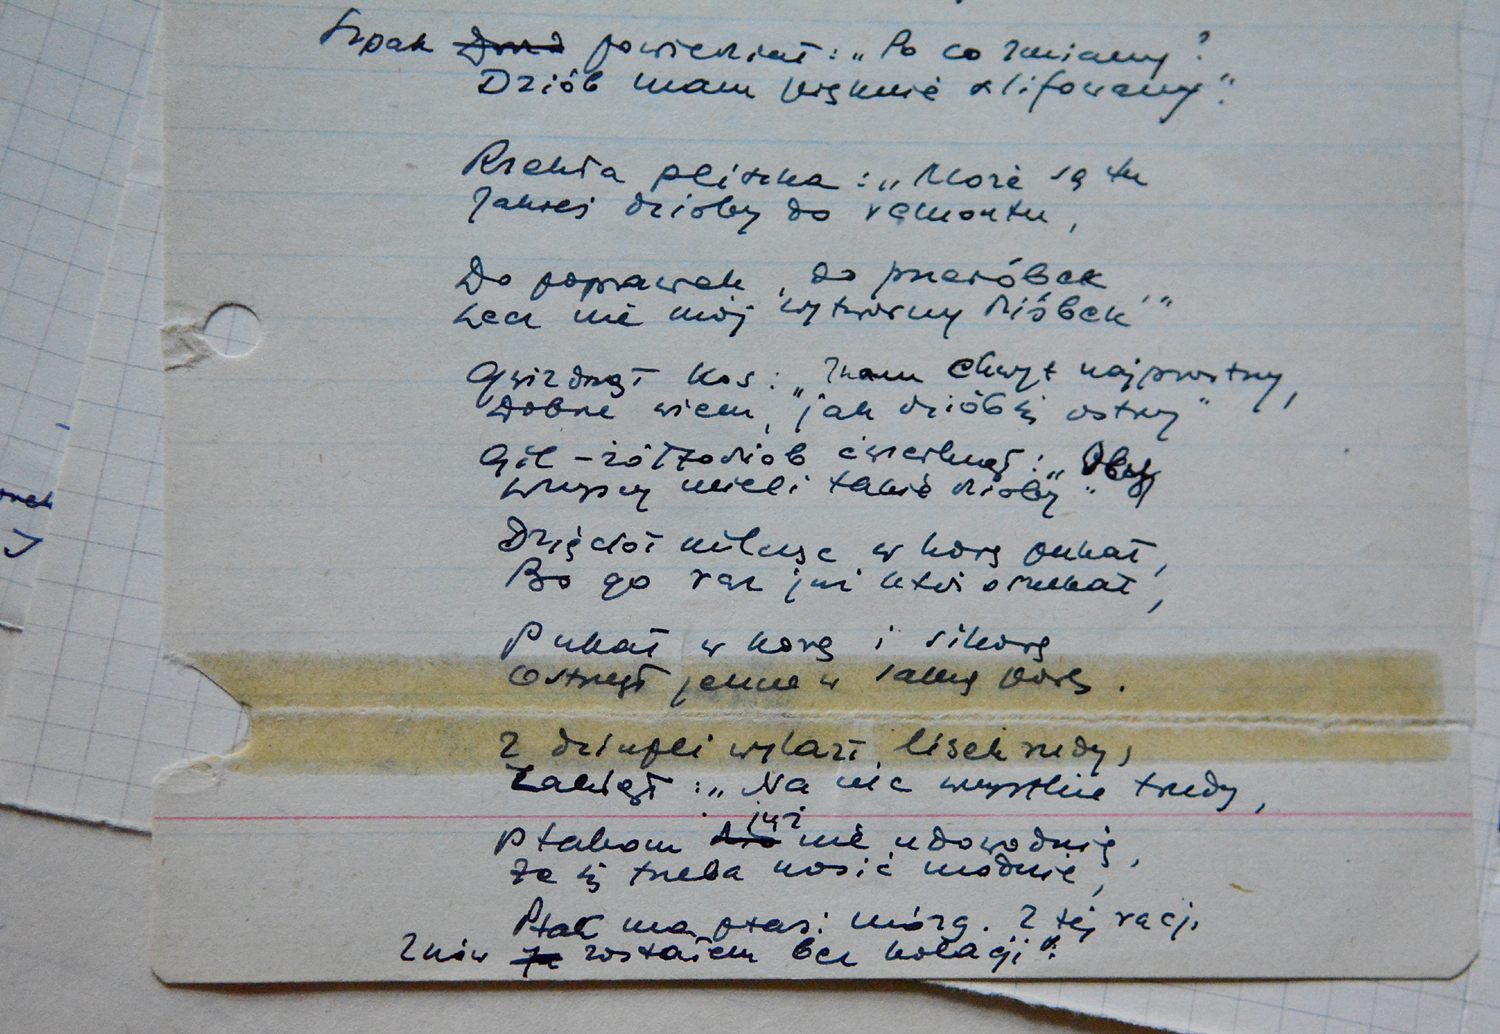 Szpak powiedział: „Po co zmiany?
Dziób mam pięknie szlifowany".
Rzekła pliszka: „Może są tu
Jakieś dzioby do remontu,
Do poprawek, do przeróbek
Lecz nie mój wytworny dzióbek"
Gwizdnął kos: „Znam chwyt najprostszy,
Dobrze wiem, jak dziób się ostrzy"
Gil-żółtodziób ćwierknął: „Oby
Wszyscy mieli takie dzioby"
Dzięcioł milcząc w korę pukał,
Bo go raz już ktoś oszukał,
Pukał w korę i sikorę
Ostrzegł jeszcze w samą porę.
Z dziupli wylazł lisek rudy,
Zaklął: „Na nic wszystkie trudy,
Ptakom już nie udowodnię,
Że się trzeba nosić modnie,
Ptak ma ptasi mózg. Z tej racji
Znów zostałem bez kolacji".